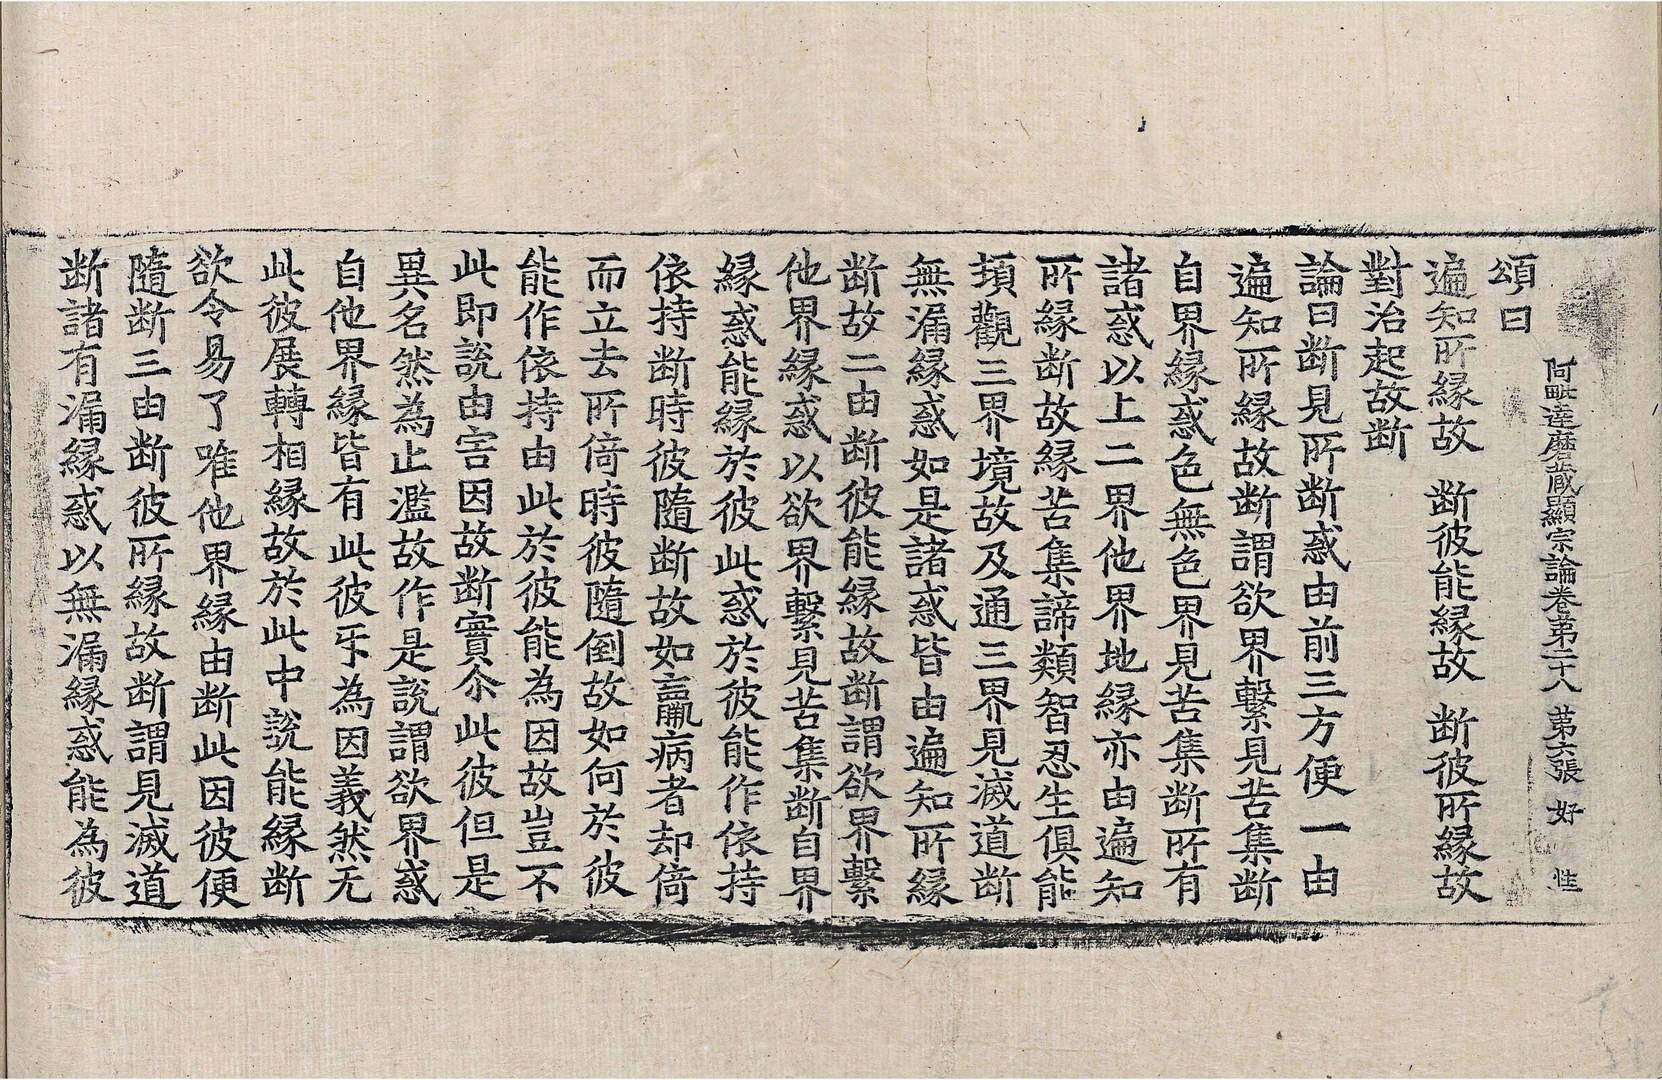 阿毗達磨蔵顯宗論卷第二十八 第六張 好 性
頌曰
遍知所縁故 斷彼能縁故 斷彼所縁故
對治起故斷
論曰断見所斷惑由前三方便一由
遍知所縁故断謂欲界繫見苦集斷
自界縁惑色無色界見苦集斷所有
諸惑以上二界他界地縁亦由遍知
所縁断故縁苦集諦類智忍生俱能
頓觀三界境故及通三界見滅道斷
無漏縁惑如是諸惑皆由遍知所縁
断故二由断彼能縁故断謂欲界繫
他界縁惑以欲界繫見苦集斷自界
縁惑能縁於彼此惑於彼能作依持
依持断時彼隨断故如羸病者却倚
而立去所倚時彼隨倒故如何於彼
能作依持由此於彼能為因故豈不
此即說由害因故断實尒此彼但是
異名然為止濫故作是說謂欲界惑
自他界縁皆有此彼㸦為因義然无
此彼展轉相縁故於此中說能縁断
欲令易了唯他界縁由断此因彼便
隨断三由断彼所縁故断謂見滅道
断諸有漏縁惑以無漏縁惑能為彼